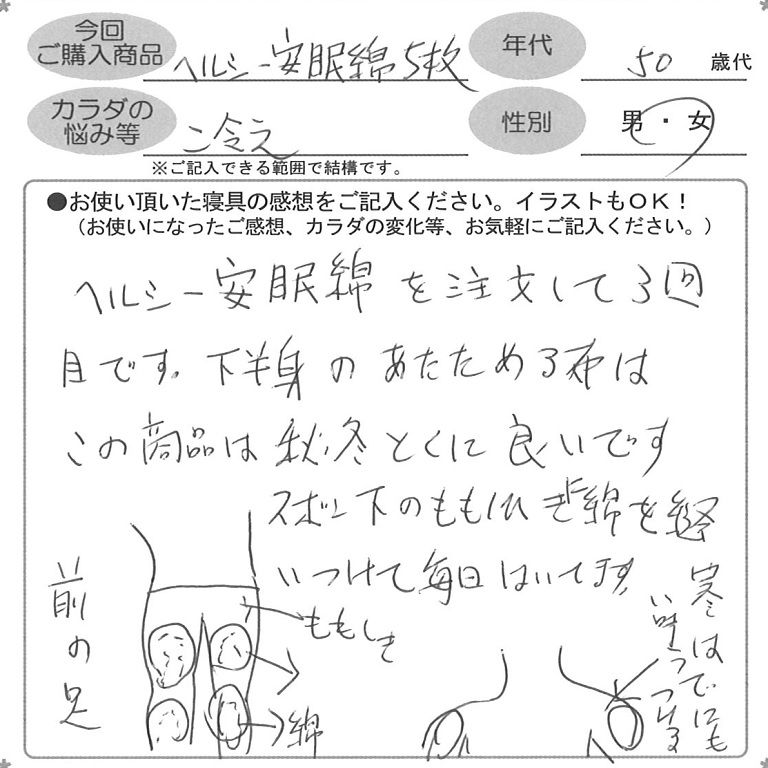 今回
ご購入商品
ヘルシー安眠綿5枚
年代
50 歳代
カラダの
悩み等
冷え
性別
男・女
※ご記入できる範囲で結構です。
●お使い頂いた寝具の感想をご記入ください。イラストもOK!
(お使いになったご感想、カラダの変化等、お気軽にご記入ください。)
ヘルシー安眠綿を注文して3週
目です。下半身のあたためる布は
この商品は秋、冬とくに良いです
ズボン下のももひきに綿を
いつけて毎日はいてます。
前の足
ももひき
綿
寒